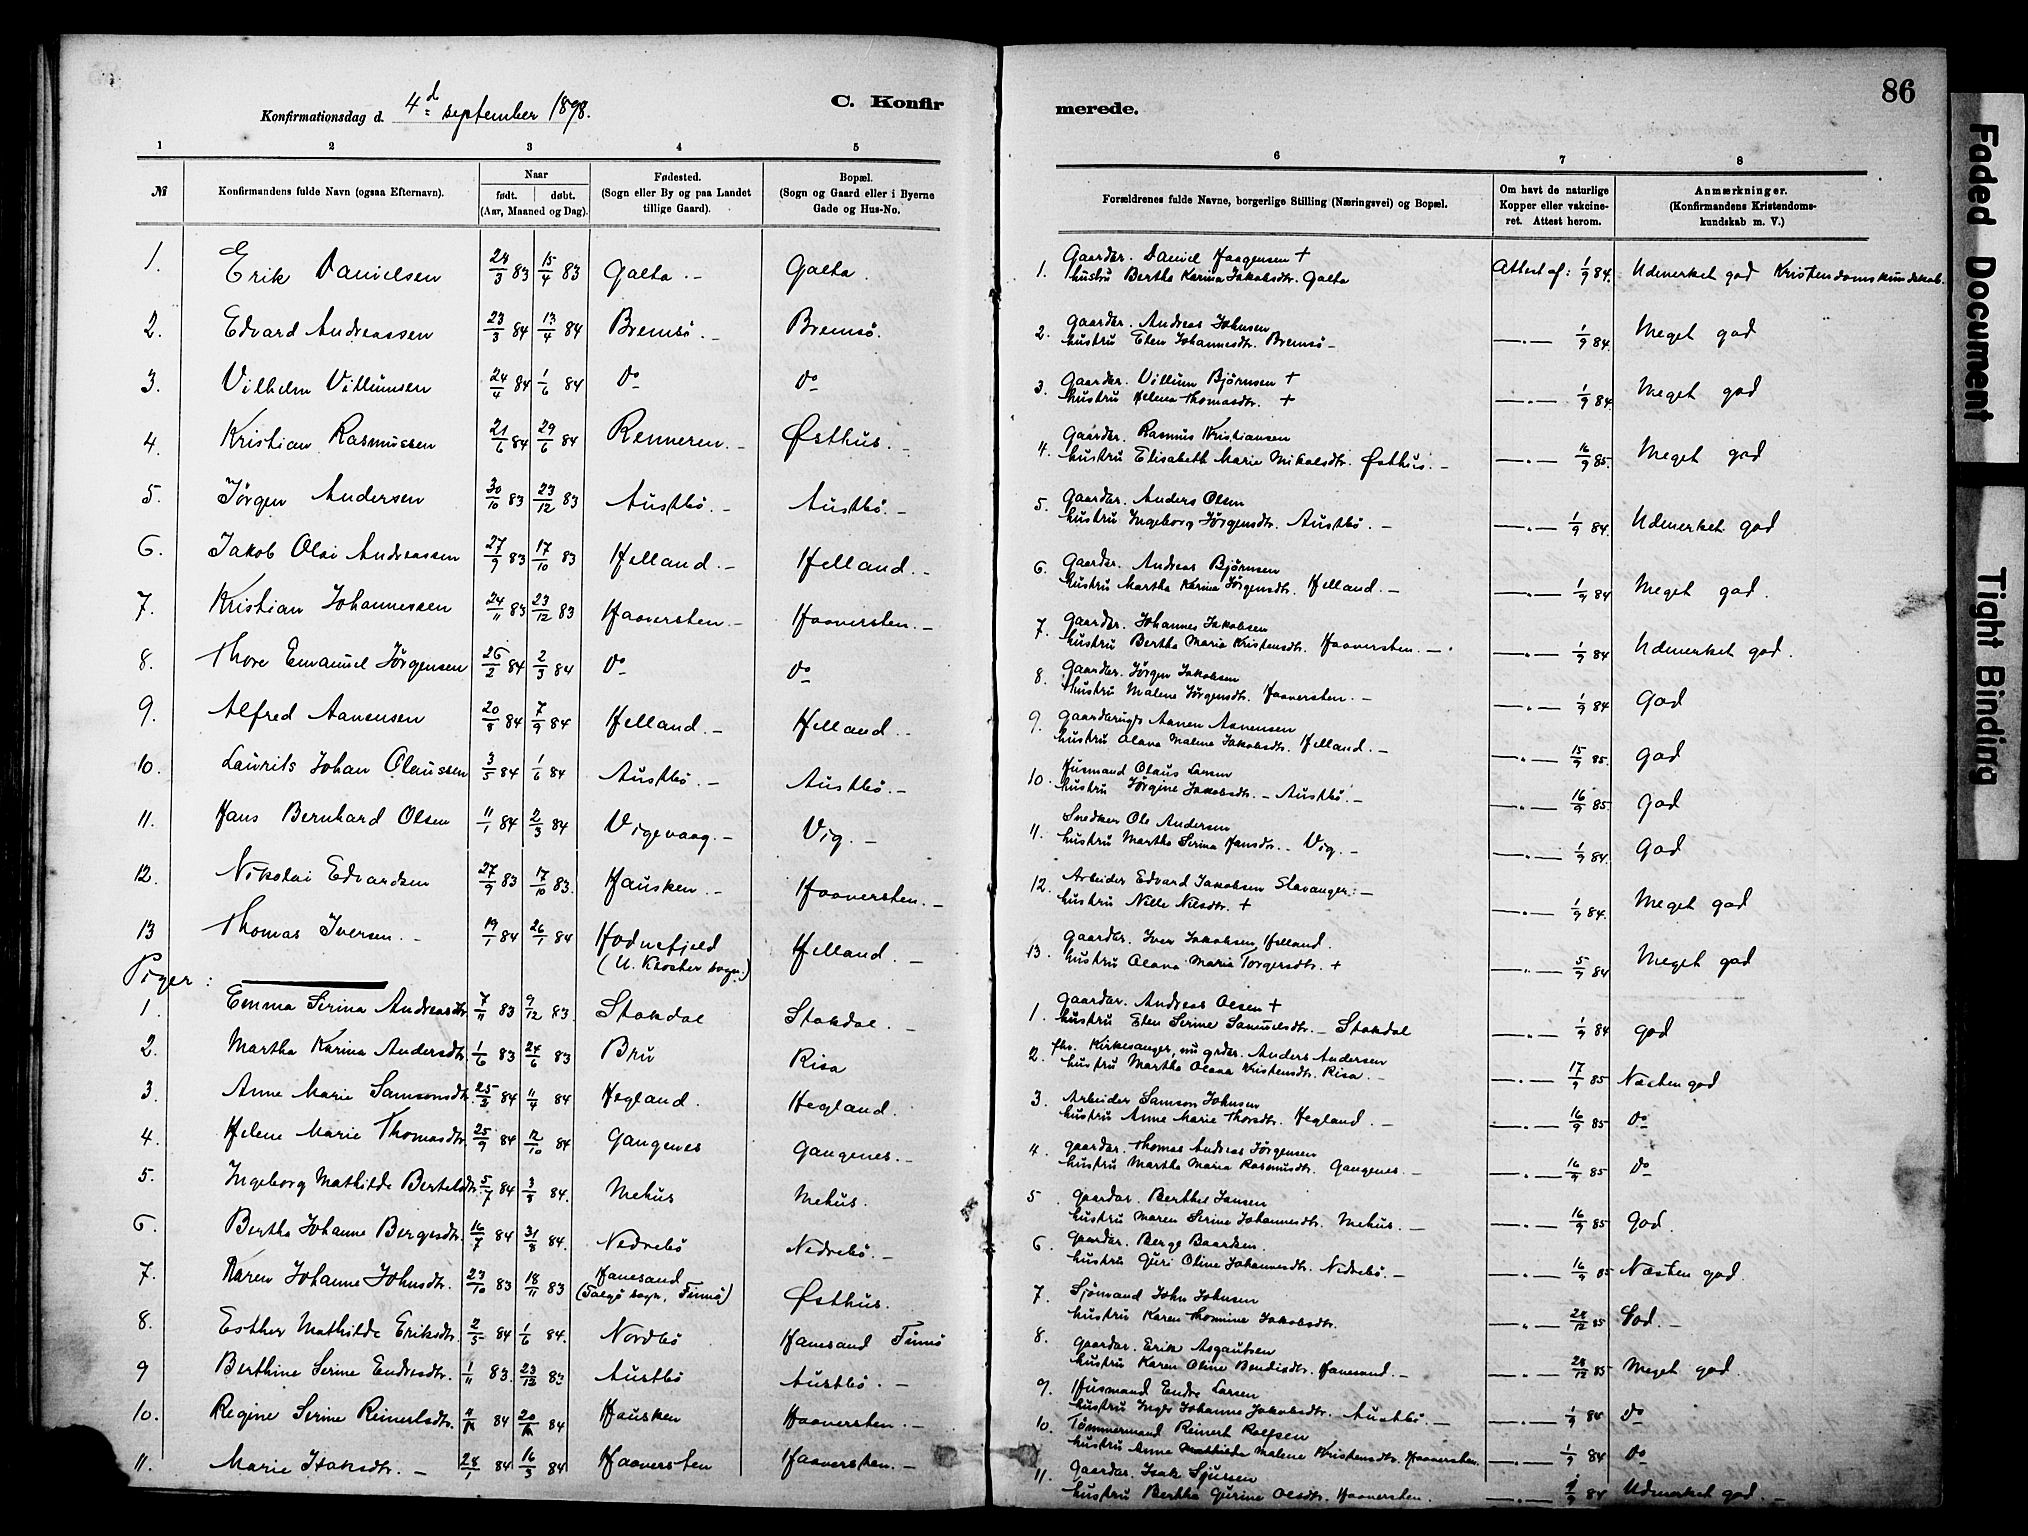 86
C. Konfirmerede.
Konfirmationsdag d. 4d september 1898.
1 2 3 4 5 6 7 8
№ Konfirmandens fulde Navn (ogsaa Efternavn). Naar født. døbt. (Aar, Maaned og Dag). Fødested. (Sogn eller By og paa Landet tillige Gaard). Bopæl. (Sogn og Gaard eller i Byerne Gade og Hus-No. Forældrenes fulde Navne, borgerlige Stilling (Næringsvei) og Bopæl. Om havt de naturlige Kopper eller vakcineret. Attest herom. Anmærkninger. (Konfirmandens Kristendomskundskab m. V.)
1. Erik Danielsen 24/3 83 15/4 83 Galta. – Galta.
2. Edvard Andreassen 23/3 84 13/4 84 Bremsø. – Bremsø.
3. Vilhelm Villumsen 24/4 84 1/6 84 do do
4. Kristian Rasmussen 21/6 84 29/6 84 Renneren. – Østhus. –
5. Jørgen Andersen 30/10 83 23/12 83 Austbø. – Austbø. –
6. Jakob Olai Andreassen 27/9 83 17/10 83 Helland. – Helland. –
7. Kristian Johannessen 24/11 83 23/12 83 Haaversten. – Haaversten. –
8. Thore Emanuel Jørgensen 26/2 84 2/3 84 do do
9. Alfred Aanensen 20/8 84 7/9 84 Helland. – Helland. –
10. Laurits Johan Olaussen 3/5 84 1/6 84 Austbø. – Austbø. –
11. Hans Bernhard Olsen 11/1 84 2/3 84 Vigevaag. – Vig. –
12. Nikolai Edvardsen 27/9 83 17/10 83. Hausken. – Haaversten. –
13 Thomas Iversen. – 19/1 84 26/1 84 Hodnefjeld (U. Kloster sogn.) Helland. –
Piger:
1. Emma Serina Andreasdtr. 7/11 83 9/12 83. Stokdal Stokdal. –
2. Martha Karina Andersdtr. 1/6 83 24/6 83 Bru Risa
3. Anne Marie Samsonsdtr. 25/3 84 11/4 84 Hegland. Hegland.
4. Helene Marie Thomasdtr. 25/9 84 12/10 84 Gangenes Gangenes. –
5. Ingeborg Mathilde Bertelsdtr. 5/7 84 3/8 84. Mehus Mehus.
6. Bertha Johanne Bergesdtr. 16/7 84 31/8 84. Nedrebø Nedrebø. –
7. Karen Johanne Johnsdtr. 23/10 83 18/11 83 Hanesand (Talgø sogn, Finnø) Østhus.
8. Esther Mathilde Eriksdtr. 2/5 84 1/6 84. Nordbø Hanesand Finnø
9 Berthine Serine Endresdtr. 1/11 83. 23/12 83 Austbø Austbø. –
10. Regine Serine Reinertsdtr. 84 84 Hausken Haaversten. –
11. Marie Isaksdtr. – 28/1 84 16/3 84 Haaversten Haaversten. –
1. Gaardbr. Daniel Haagensen + Attest af: 1/9 84. Udmerket god Kristendomskundskab.
hustru Bertha Karina Jakobsdtr. Galta
2. Gaardbr. Andreas Johnsen
hustru Elen Johannesdtr. Bremsø – —„— 1/9 84. Meget god
3. Gaardbr. Villum Bjørnsen +
hustru Helena Thomasdtr. + —„— 1/9 84. Meget god
4. Gaardbr. Rasmus Kristiansen
hustru Elisabeth Marie Mikalsdtr. Østhus. – —„— 16/9 85. Meget god
5. Gaardbr. Anders Olsen
hustru Ingeborg Jørgensdtr. Austbø. – —„— 1/9 84. Udmerket god
6. Gaardbr. Andreas Bjørnsen
hustru Martha Karina Jørgensdtr. Helland. – —„— 1/9 84 Meget god.
7. Gaardbr. Johannes Jakobsen
hustru Bertha Maria Kristensdtr. Haaversten. – —„— 1/9 84 Udmerket god.
8. Gaardbr. Jørgen Jakobsen
hustru Malene Jørgensdtr. Haaversten. – —„— 1/9 84 God
9. Gaardbrugr. Aanen Aanensen
hustru Olava Malene Jakobsdtr. Helland. – —„— 15/9 85. god
10. Husmand Olaus Larsen
hustru Jørgine Jakobsdtr. – Austbø. – —„— 16/9 85 God
11. Snedker Ole Andersen
hustru Martha Serina Hansdtr. – Vig. – —„— 1/9 84. God
12. Arbeider Edvard Jakobsen Stavanger. –
hustru Nille Nilsdtr. + —„— 1/9 84. Meget god
13. Gaardbr. Iver Jakobsen Helland.
hustru Olava Maria Torgersdtr. + —„— 5/9 84 Meget god
1. Gaardbr. Andreas Olsen +
hustru Elen Serine Samuelsdtr. – Stokdal —„— 1/9 84 god
2. fhv. Kirkesanger, nu grdbr. Anders Andersen
hustru Martha Olava Kristensdtr. Risa. – —„— 17/9 85 Næsten god
3. Arbeider Samson Johnsen
hustru Anne Marie Thorsdtr. Hegland. – —„— 16/9 85 do
4. gaardbr. Thomas Andreas Jørgensen
hustru Martha Maria Rasmusdtr. Gangenes. – —„— 16/9 85 do
5. gaardbr. Berthel Jansen
hustru Maren Serine Johannesdtr. Mehus. – —„— 16/9 85 god.
6. gaardbr. Berge Baardsen.
hustru Guri Oline Johannesdtr. Nedrebø. – —„— 16/9 85 Næsten god.
7. Sjømand John Johnsen
hustru Karen Thomine Jakobsdtr. —„— 28/12 85 God. –
8. gaardbr. Erik Asgautsen
hustru Karen Oline Bendixdtr. Hanesand. – —„— 28/12 85 Meget god.
9. Husmand Endre Larsen
hustru Inger Johanne Jakobsdtr. Austbø. – —„— 1/9 84 do
10. Tømmermand Reinert Rolfsen
hustru Anna Mathilda Malene Kristensdtr. Haaversten. —„— 1/9 84 do
11. Gaardbr. Isak Sjursen
hustru Bertha Gurine Olsdtr. Haaversten. —„— 1/9 84 Udmerket god. –
Faded Document
Tight Binding